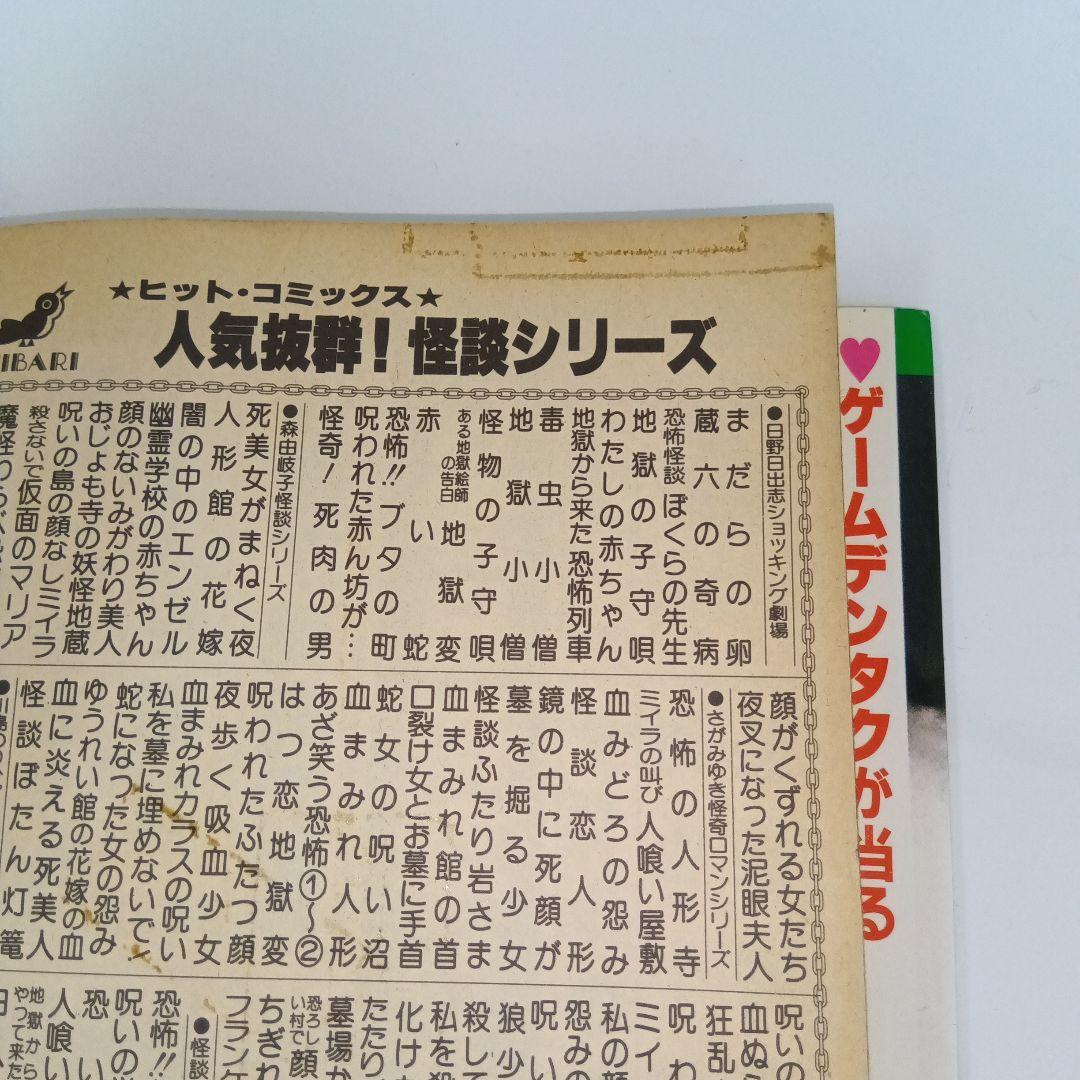 ★ヒット・コミックス★
人気抜群！怪談シリーズ
IBARI
●日野日出志ショッキング劇場
まだらの卵
蔵六の奇病
恐怖怪談ぼくらの先生
地獄の子守唄
わたしの赤ちゃん
地獄から来た恐怖列車
毒虫小僧
地獄小僧
怪物の子守唄
ある地獄絵師の告白 地獄変
赤い蛇
恐怖!!ブタの町
呪われた赤ん坊が…
怪奇！死肉の男
●森由岐子怪談シリーズ
死美女がまねく夜
人形館の花嫁
闇の中のエンゼル
幽霊学校の赤ちゃん
顔のないみがわり美人
おじょも寺の妖怪地蔵
呪いの島の顔なしミイラ
殺さないで仮面のマリア
顔がくずれる女たち
夜叉になった泥眼夫人
●さがみゆき怪奇ロマンシリーズ
恐怖の人形寺
ミイラの叫び人喰い屋敷
血みどろの怨み
怪談恋人形
鏡の中に死顔が
墓を掘る少女
怪談ふたり岩さま
血まみれ館の首
口裂け女とお墓に手首
蛇女の呪い沼
血まみれ人形
あざ笑う恐怖①～②
はつ恋地獄変
呪われたふたつ顔
夜歩く吸血少女
血まみれカラスの呪い
私を墓に埋めないで！
蛇になった女の怨み
ゆうれい館の花嫁の血
血に炎える死美人
怪談ぼたん灯篭
呪いの
血ぬ
狂乱
呪わ
ミイ
私の顔
怨みの
呪い
狼少
殺して
私を殺
化け
たたり
墓場か
恐ろしい村で顔
ちぎれ
フランケ
●怪談
恐怖!!
呪いの
恐い
人喰い
地獄から やって来た
♥ゲームデンタクが当る